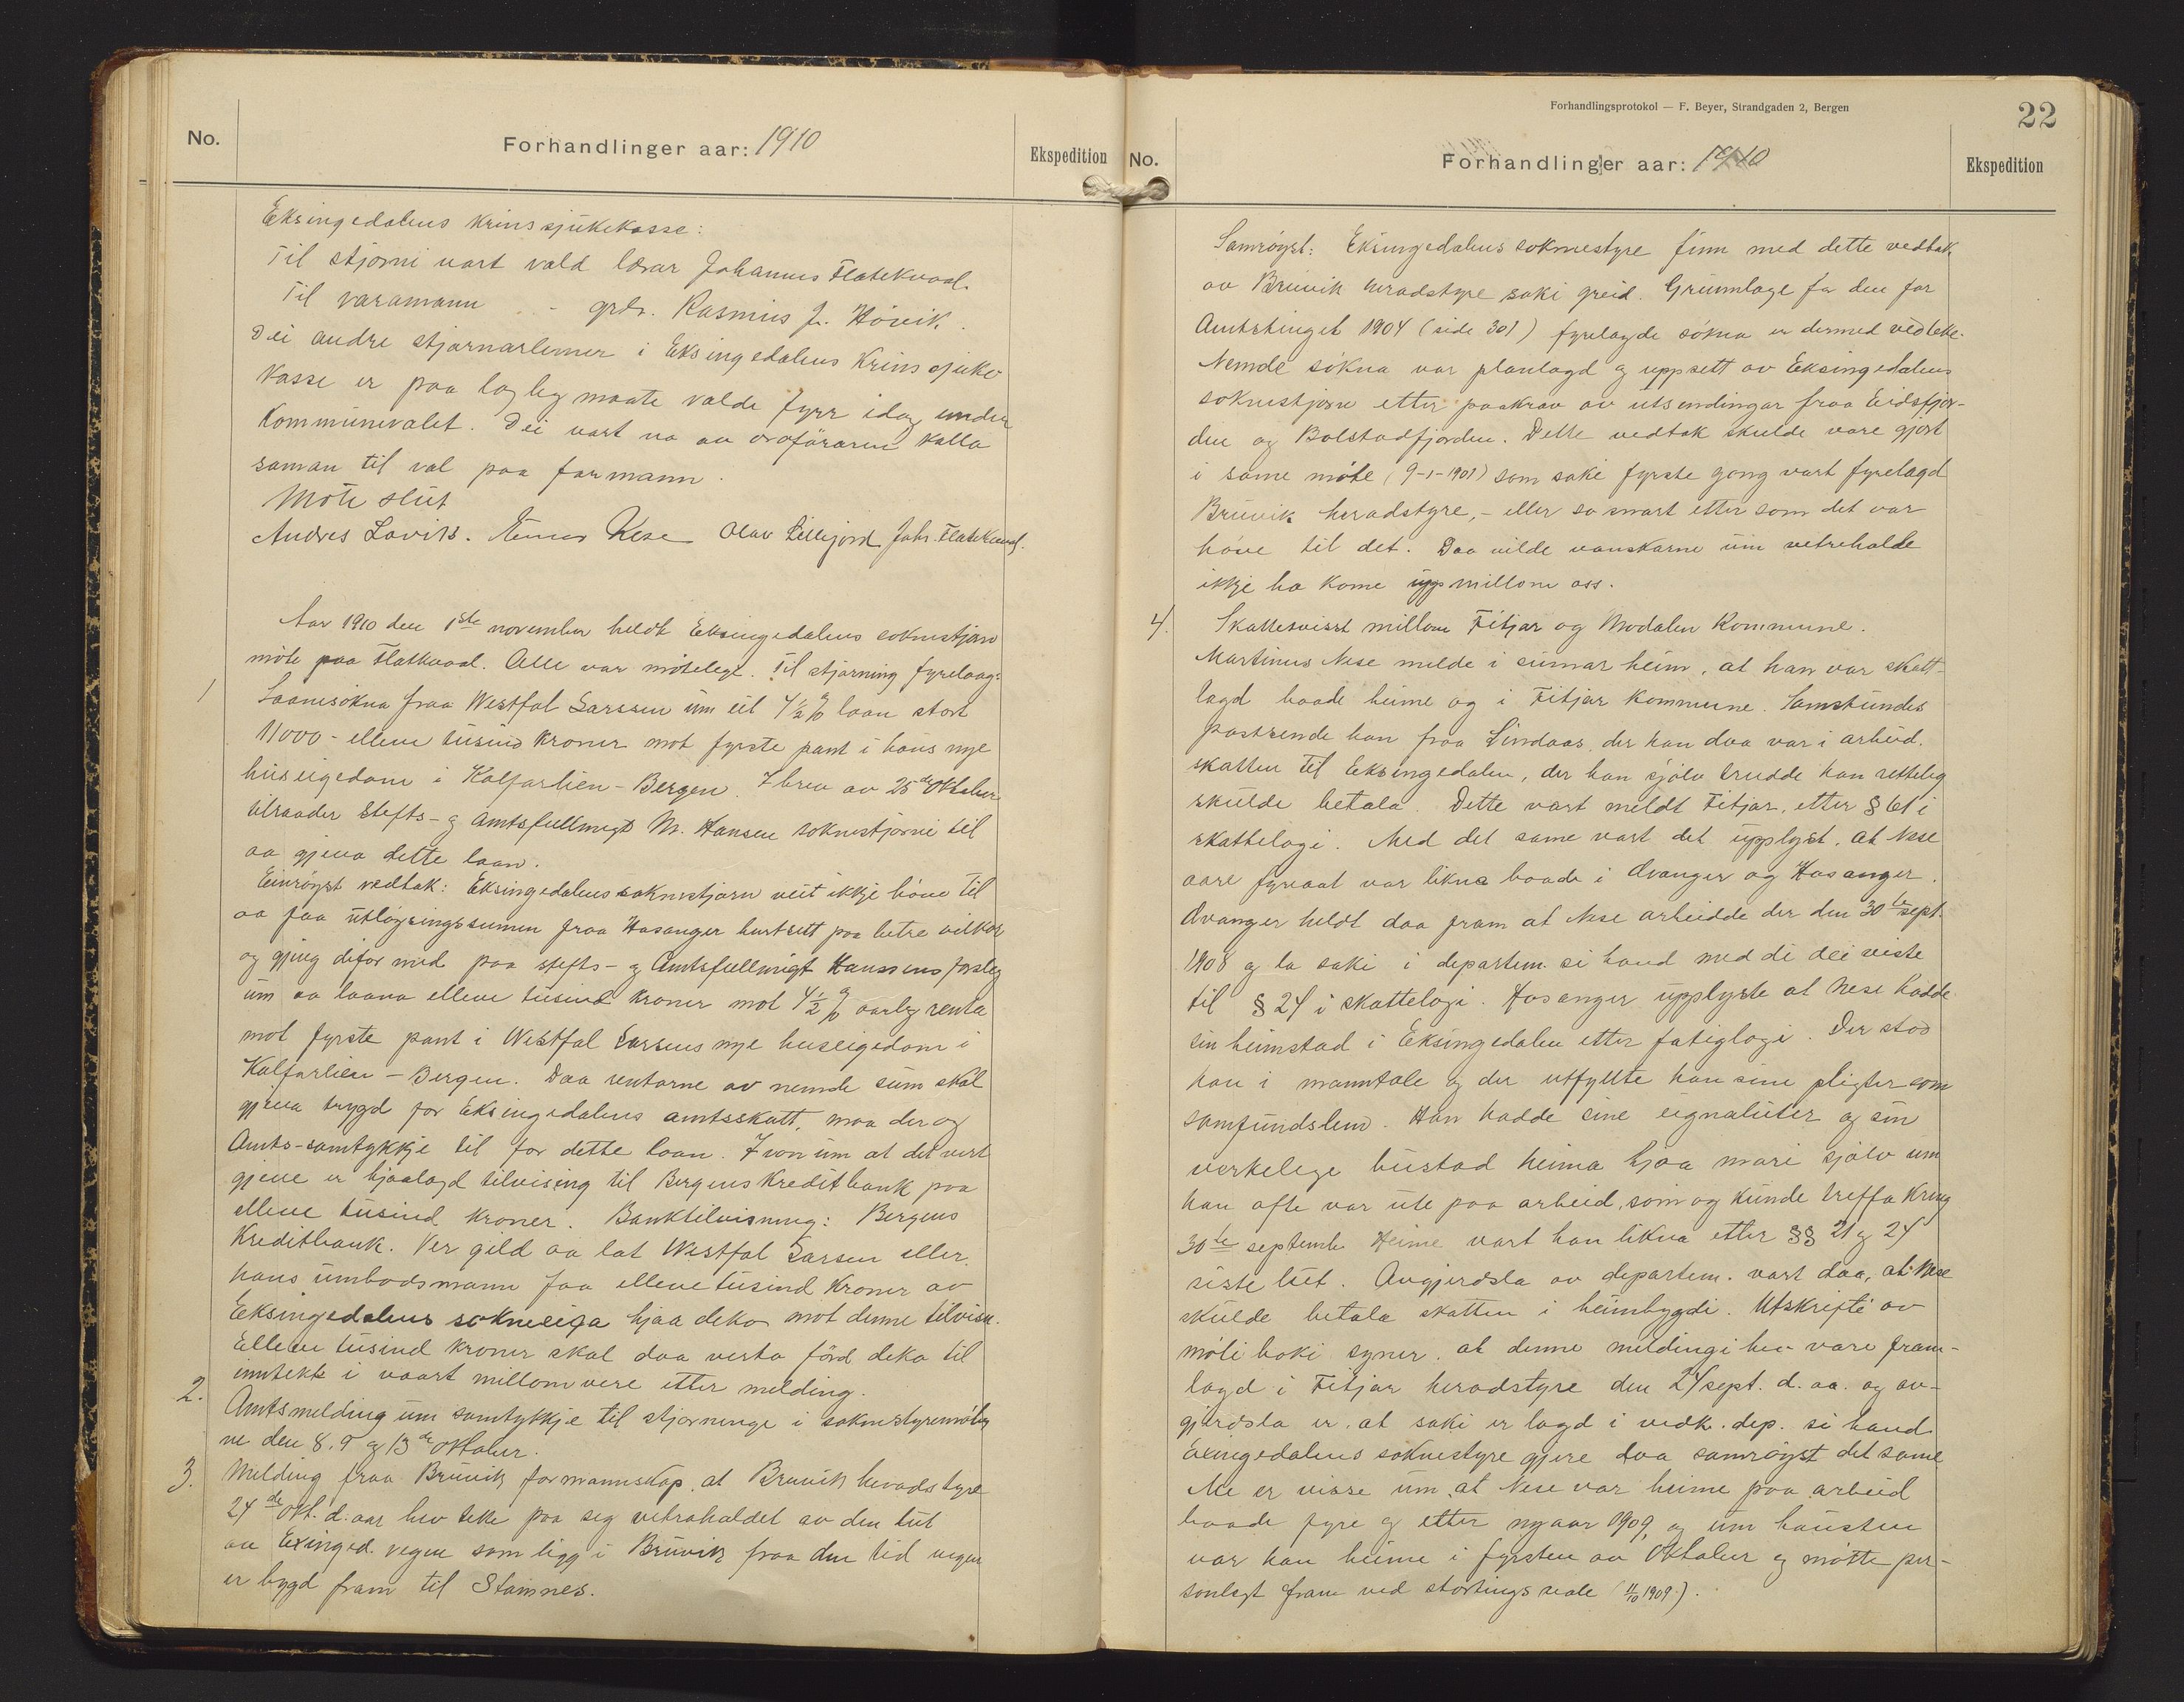 No.
Forhandlinger aar: 1910
Ekspedition
Eksingedalens krinssjukekasse:
Til stjorni vart vald lærar Johannes Flatekvaal.
Til varamann - grbr. Rasmus J. Høvik.
Dei andre stjornarlemer i Eksingedalens Krinssjuke
kasse er paa logleg maate valde fyrr idag under
Kommunevalet. Dei vart no av ordføraren kalla
saman til val paa formann.
Møte slut
Andres Lavik. Nese Olav Lillejord Johs. Flatekvaal.
Aar 1910 den 1ste november heldt Eksingedalens soknestjorn
møte paa Flatkvaal. Alle var møtelege. Til stjorning fyrelaag:
1 Laanesøkna fraa Westfal Larssen um eit 4½ % laan stort
11000 - elleve tusind kroner mot fyrste pant i hans nye
huseigedom i Kalfarlien - Bergen. I brev av 25de Oktober
tilraader stifts- og amtsfullmegt M. Hansen soknestjorni til
aa gjeva dette laan.
Einrøyst vedtak: Eksingedalens soknestjorn veit ikkje høve til
aa faa utløysingssumen fraa Hosanger burtsett paa betre vilkor
og gjeng difor med paa stifts- og Amtsfullmegt Hanssens forslag
um aa laana elleve tusind kroner mot 4½ % aarleg renta
mot fyrste pant i Westfal Larsens nye huseigedom i
Kalfarlien - Bergen. Daa rentorne av nemde sum skal
gjeva trygd for Eksingedalens amtsskatt, maa der og
Amts-samtykkje til for dette laan. I von um at det vert
gjeve er hjaalagd tilvising til Bergens Kreditbank paa
elleve tusind kroner. Banktilvisning: Bergens
Kreditbank. Ver gild aa lat Westfal Larsen eller
hans umbodsmann faa elleve tusind Kroner av
Eksingedalens sokneeiga hjaa deko mot denne tilvisn.
Elleve tusind kroner skal daa verta førd deko til
inntekt i vaart millomvere etter melding.
2. Amtsmelding um samtykkje til stjorninge i soknestyremøty
ne den 8. 9 og 13de Oktober.
3. Melding fraa Bruvik formannskap, at Bruvik heradstyre
24de Okt. d. aar hev teke paa seg vetrahaldet av den lut
av Exinged. vegen som ligg i Bruvik fraa den tid vegen
er bygd fram til Stamnes.
Forhandlingsprotokol — F. Beyer, Strandgaden 2, Bergen
22
No.
Forhandlinger aar: 1910
Ekspedition
Samrøyst: Eksingedalens soknestyre finn med dette vedtak
av Bruvik heradstyre saki greid. Grunnlage for den for
Amtstinget 1904 (side 301) fyrelagde søkna er dermed vedteke.
Nemde søkna var planlagd og uppsett av Eksingedalens
soknestjorn etter paakrav av utsendingar fraa Eidsfjor-
den og Bolstadfjorden. Dette vedtak skulde vore gjort
i same møte (9-1-1901) som saki fyrste gong vart fyrelagd
Bruvik heradstyre, - eller so snart etter som det var
høve til det. Daa vilde vanskarne um vetrehalde
ikkje ha kome upp millom oss.
4. Skattesvist millom Fitjar og Modalen Kommune.
Martinus Nese melde i sumar heim, at han var skatt-
lagd baade heime og i Fitjar kommune. Samstundes
postsende han fraa Lindaas, der han daa var i arbeid,
skatten til Eksingedalen, der han sjølv trudde han retteleg
skulde betala. Dette vart meldt Fitjar, etter § 61 i
skattelogi. Med det same vart det upplyst, at Nese
aare fyreaat var likna baade i Avanger og Hosanger.
Avanger heldt daa fram at Nese arbeidde der den 30te sept.
1908 og la saki i departem. si hand med di dei viste
til § 24 i skattelogi. Hosanger upplyste at Nese hadde
sin heimstad i Eksingedalen etter fatiglogi. Der stod
han i manntale og der utfyllte han sine pligter som
samfundslem. Han hadde sine eignaluter og sin
verkelege bustad heima hjaa mori sjølv um
han ofte var ute paa arbeid, som og kunde treffa kring
30te septembr. Heime vart han likna etter §§ 21 og 24
siste lut. Avgjerdsla av departem. vart daa, at Nese
skulde betala skatten i heimbygdi. Utskrifti av
møteboki syner, at denne meldingi hev vore fram-
lagd i Fitjar heradstyre den 24 sept. d. aa. og av-
gjerdsla er, at saki er lagd i vedk. dep. si hand.
Exingedalens soknestyre gjere daa samrøyst det same.
Me er visse um, at Nese var heime paa arbeid
baade fyre og etter nyaar 1909, og um hausten
var han heime i fyrsten av Oktober og møtte per-
sonlegt fram ved stortingsvale (11/10 1909.).